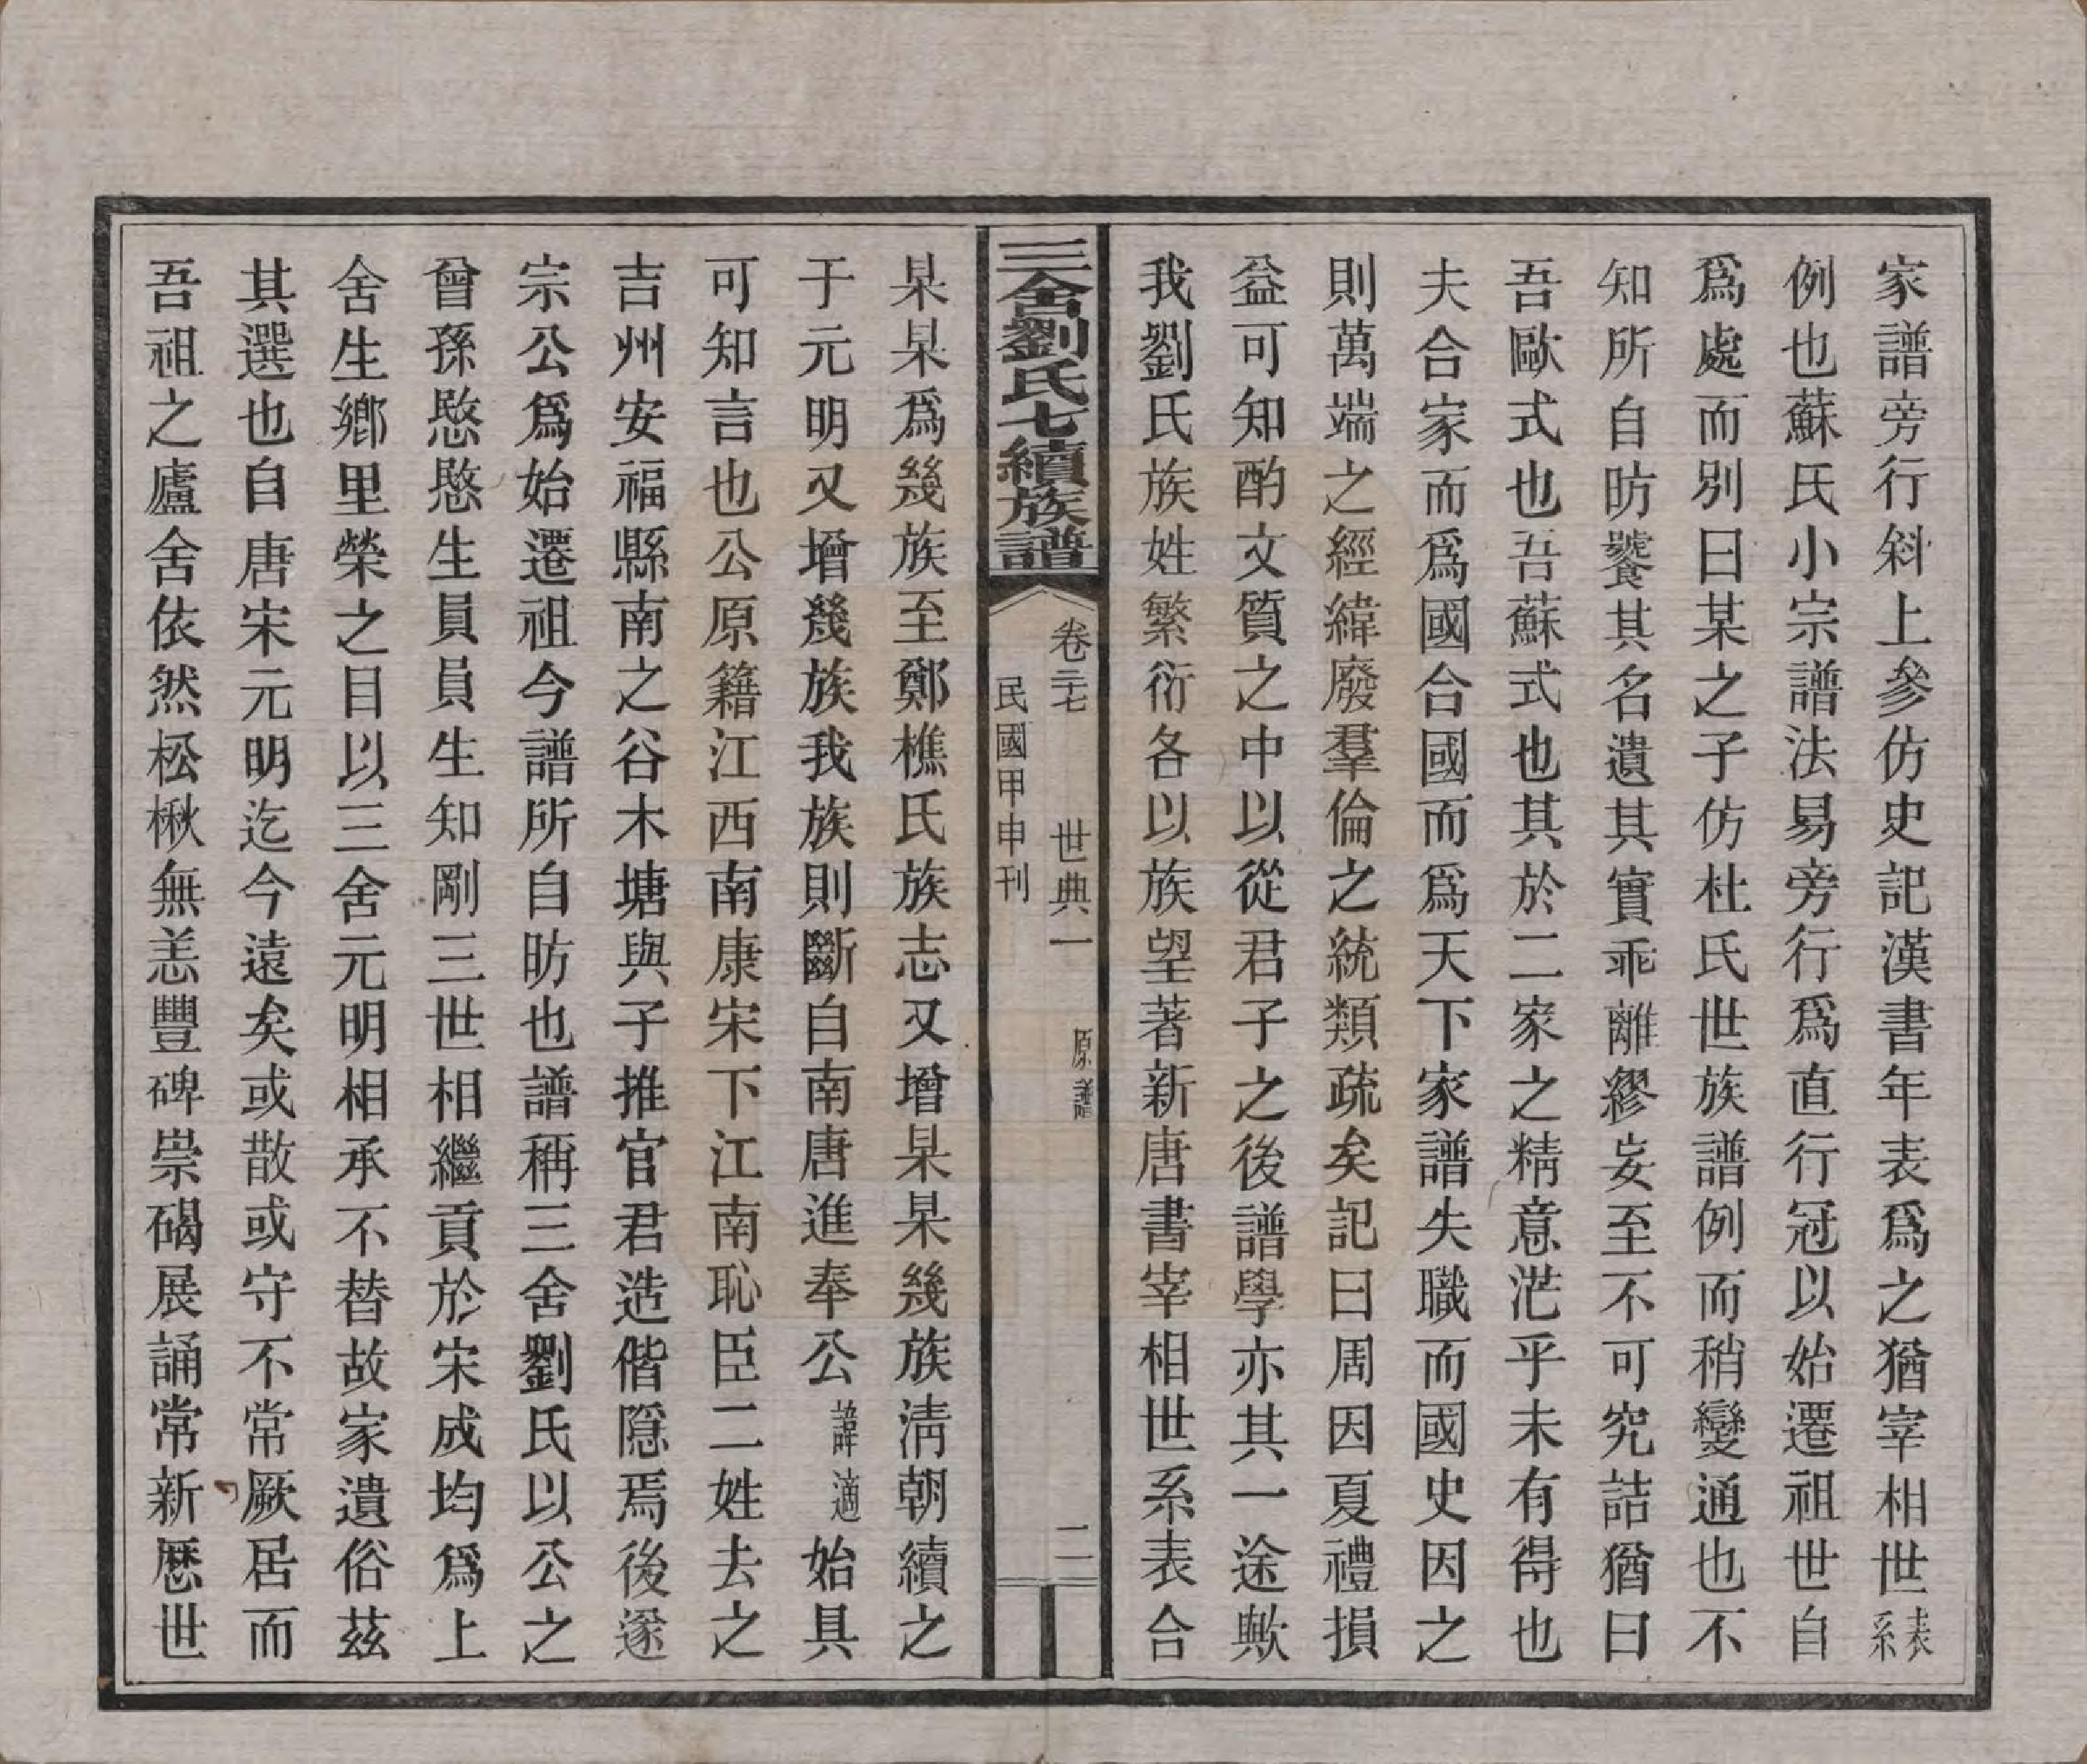 家譜旁行斜上參仿史記漢書年表爲之猶宰相世表系
例也蘇氏小宗譜法易旁行爲直行冠以始遷祖世自
爲處而別曰某之子仿杜氏世族譜例而稍變通也不
知所自昉襲其名遺其實乖離繆妄至不可究詰猶曰
吾歐式也吾蘇式也其於二家之精意茫乎未有得也
夫合家而爲國合國而爲天下家譜失職而國史因之
則萬端之經緯廢羣倫之統類疏矣記曰周因夏禮損
益可知酌文質之中以從君子之後譜學亦其一途歟
我劉氏族姓繁衍各以族望著新唐書宰相世系表合
三舍劉氏七續族譜
卷三七　世典一　原譜　二
民國甲申刊
某某爲幾族至鄭樵氏族志又增某某幾族淸朝續之
于元明又增幾族我族則斷自南唐進奉公諱適始具
可知言也公原籍江西南康宋下江南恥臣二姓去之
吉州安福縣南之谷木塘與子推官君造偕隱焉後遂
宗公爲始遷祖今譜所自昉也譜稱三舍劉氏以公之
曾孫愍愍生員員生知剛三世相繼貢於宋成均爲上
舍生鄉里榮之目以三舍元明相承不替故家遺俗茲
其選也自唐宋元明迄今遠矣或散或守不常厥居而
吾祖之廬舍依然松楸無恙豐碑崇碣展誦常新歷世